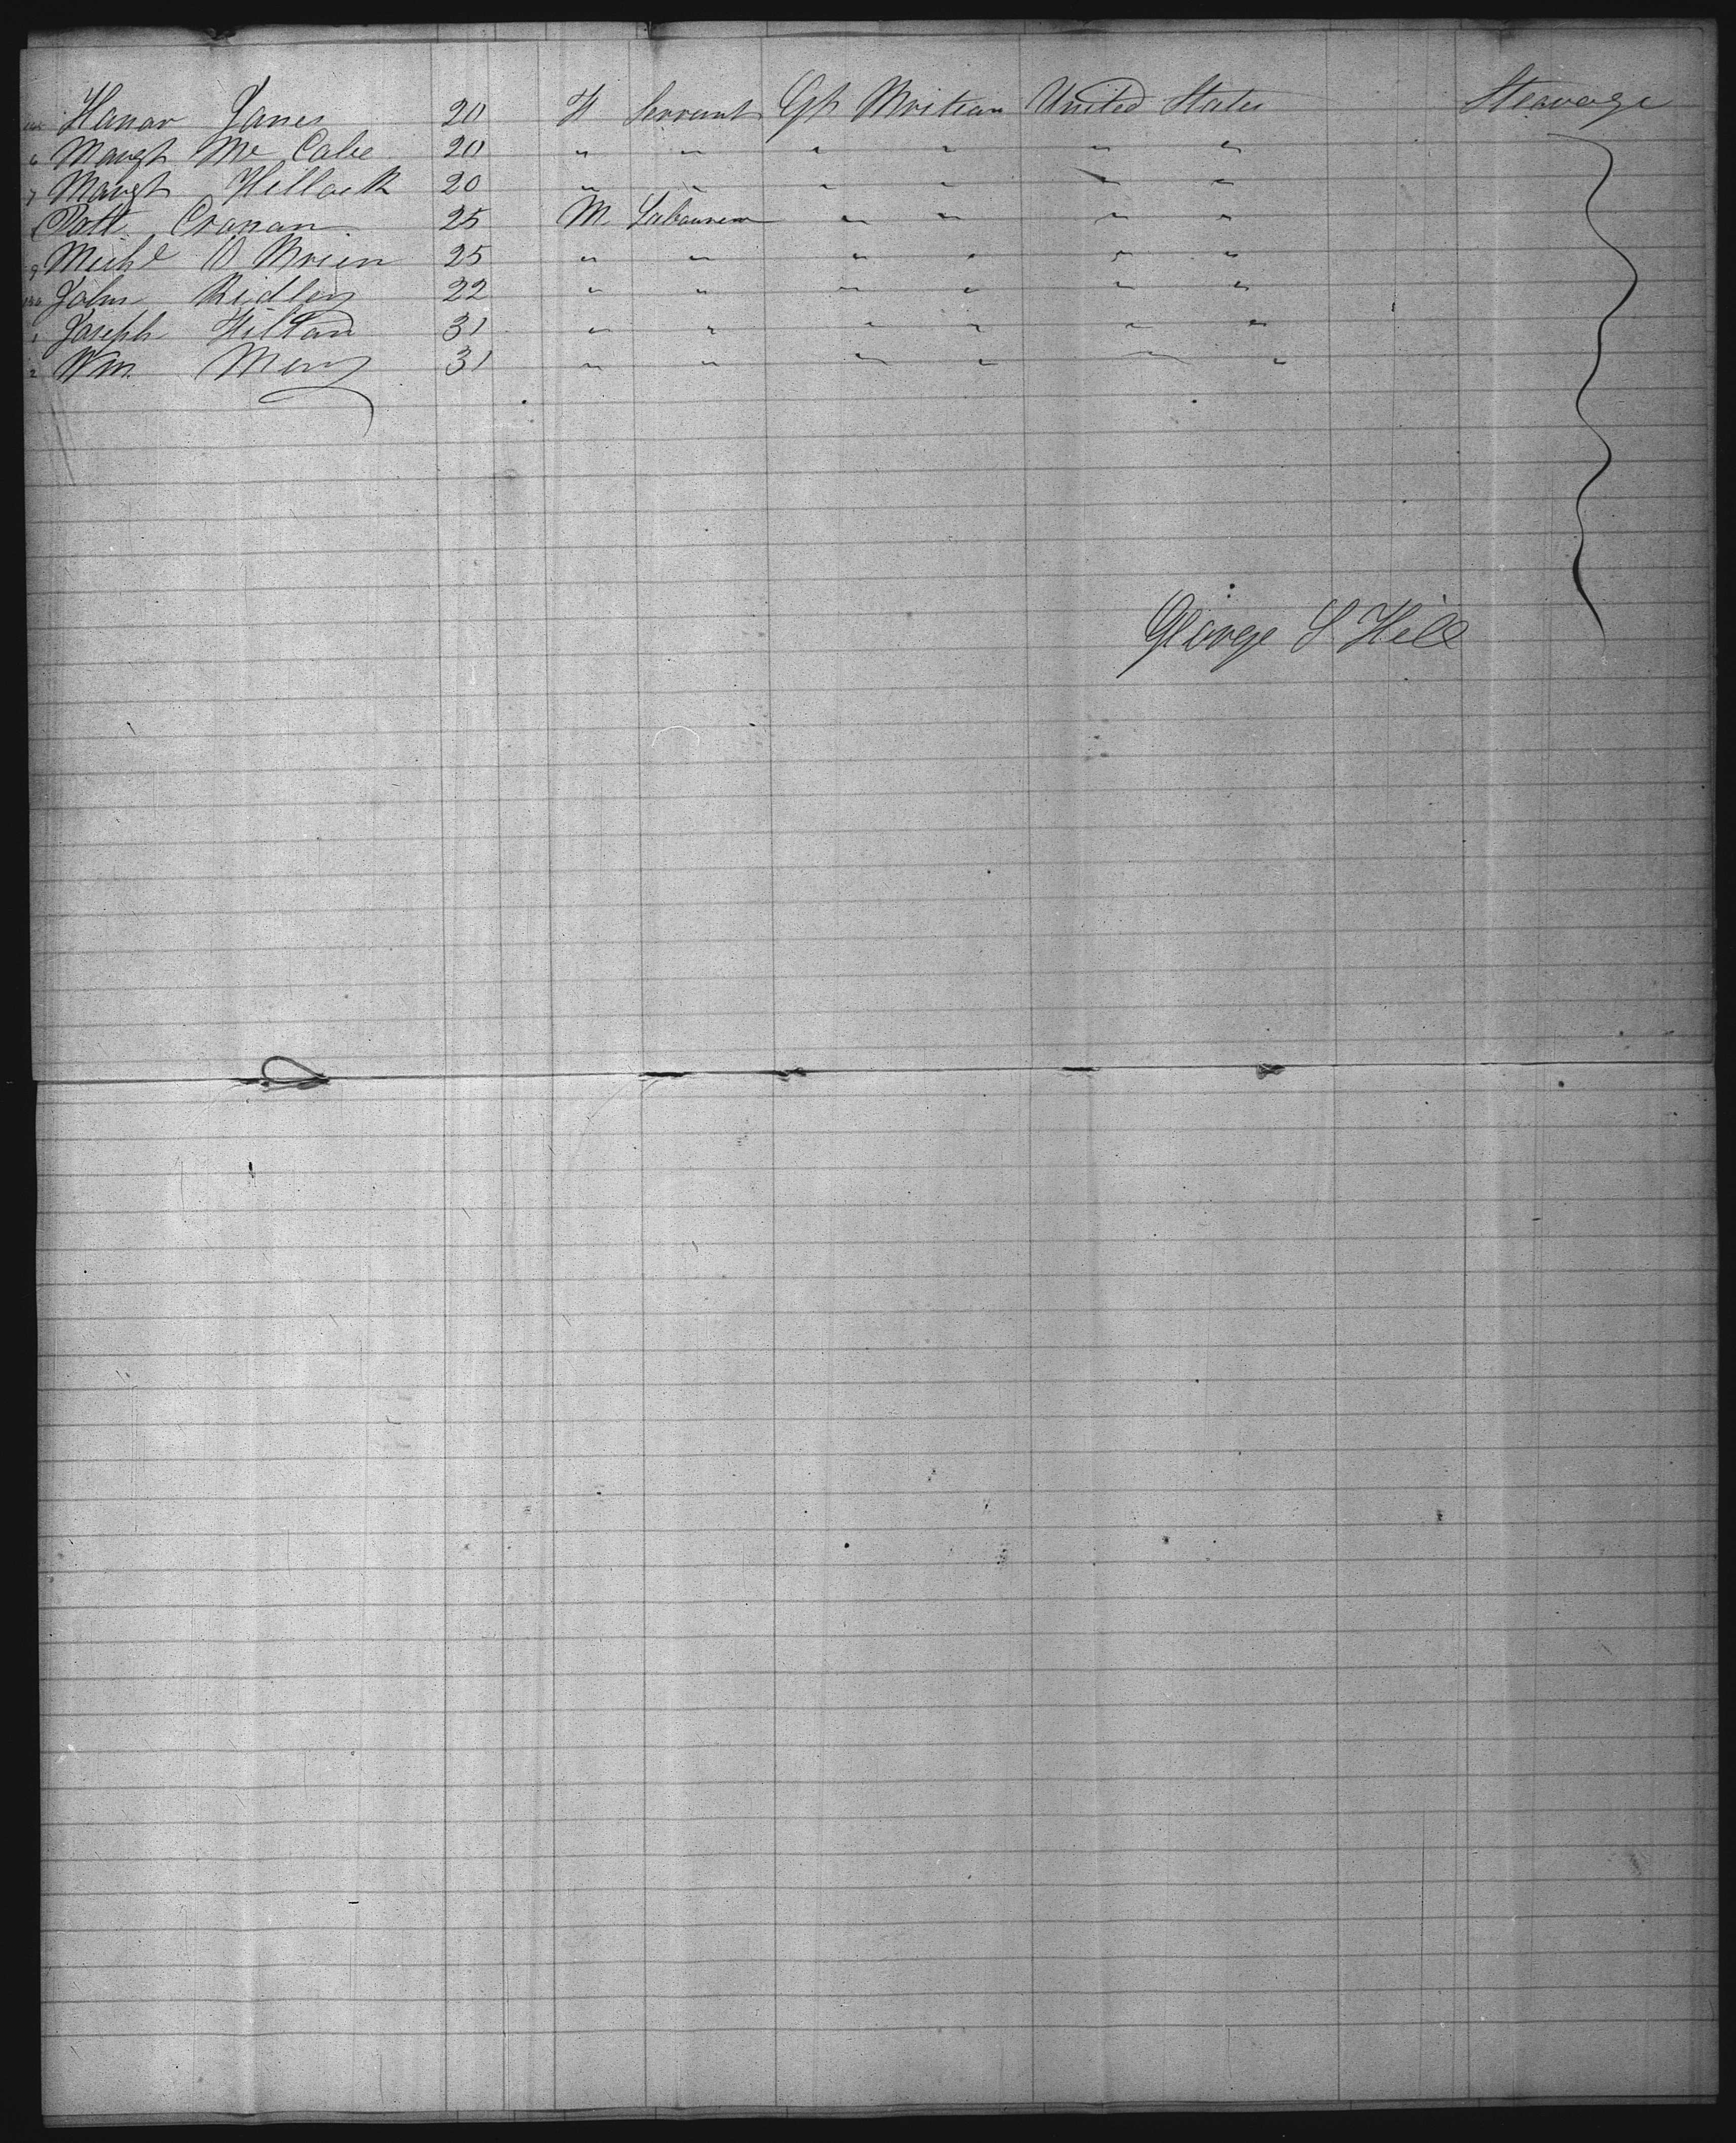 Hanar Janes 20 F Servant Gt Britian United States Stearage
6 Margt Mc Cabe 20 " " " " " "
7 Margt Hillock 20 " " " " " "
Patt Cronan 25 M Labourer " " " "
9 Michl O Brien 25 " " " " " "
John Ridley 22 " " " " " "
1 Joseph 31 " " " " " "
2 Wm. 31 " " " " " "
George S Hill